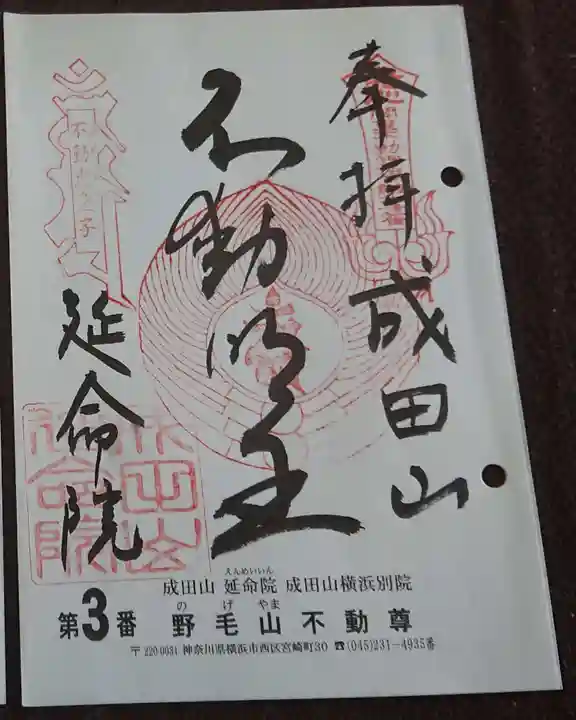 奉拝 成田山
不動明王
延命院
えんめいいん
成田山 延命院 成田山横浜別院
のげやま
第3番 野毛山不動尊
〒220-0031 神奈川県横浜市西区宮崎町30 ☎(045)231-4935番